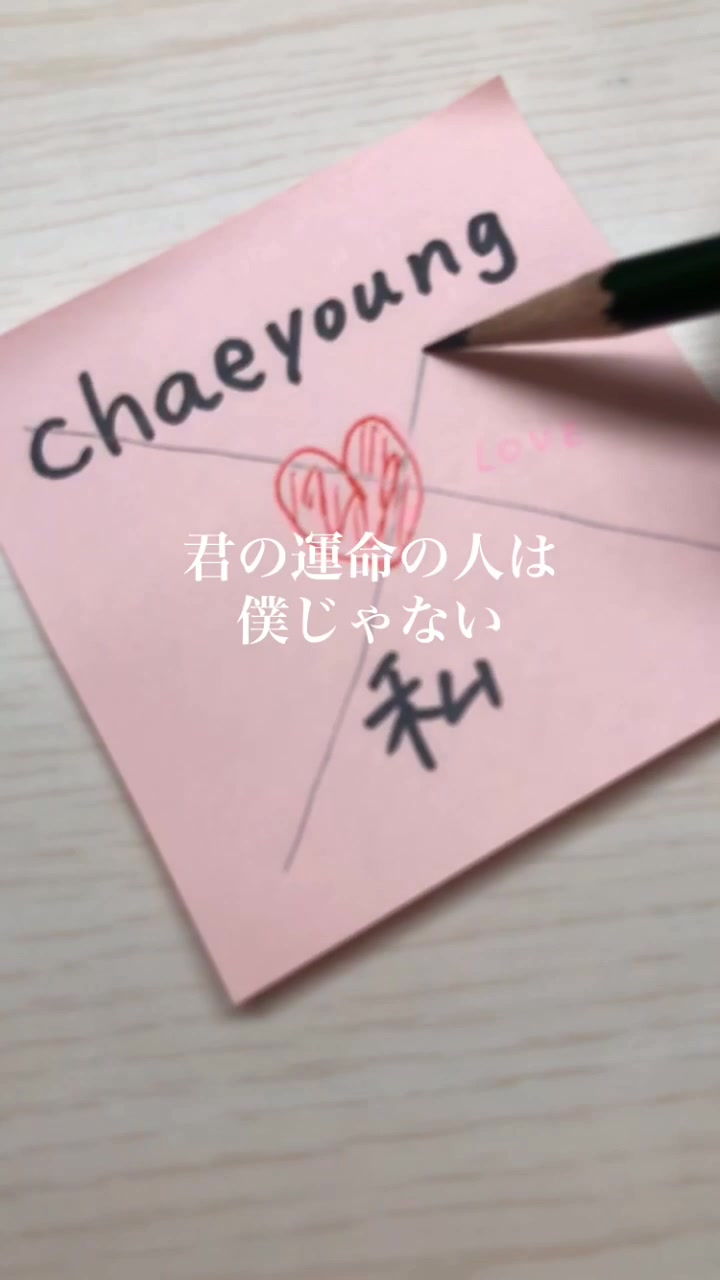 chaeyoung
LOVE
君の運命の人は
僕じゃない
私